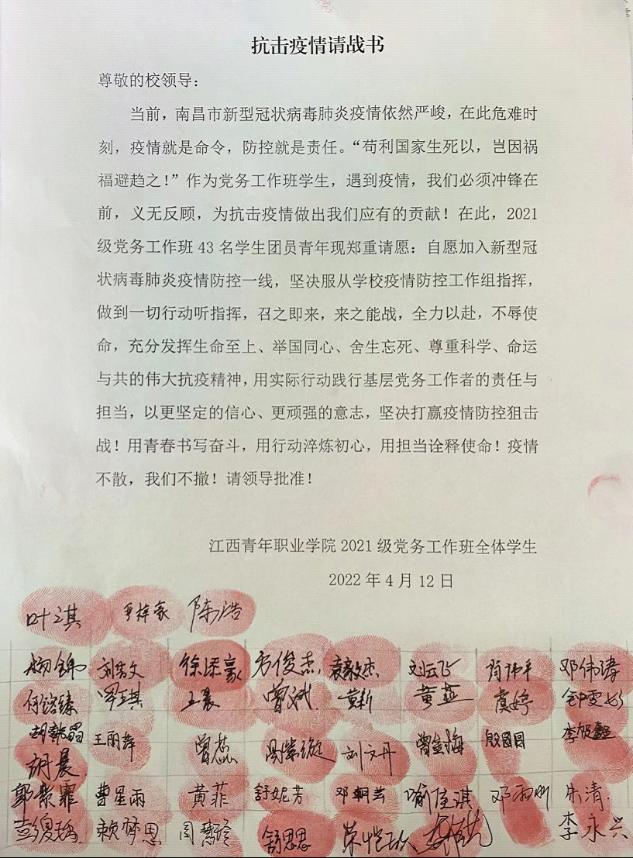 抗击疫情请战书
尊敬的校领导：
当前，南昌市新型冠状病毒肺炎疫情依然严峻，在此危难时
刻，疫情就是命令，防控就是责任。“苟利国家生死以，岂因祸
福避趋之！”作为党务工作班学生，遇到疫情，我们必须冲锋在
前，义无反顾，为抗击疫情做出我们应有的贡献！在此，2021
级党务工作班 43 名学生团员青年现郑重请愿：自愿加入新型冠
状病毒肺炎疫情防控一线，坚决服从学校疫情防控工作组指挥，
做到一切行动听指挥，召之即来，来之能战，全力以赴，不辱使
命，充分发挥生命至上、举国同心、舍生忘死、尊重科学、命运
与共的伟大抗疫精神，用实际行动践行基层党务工作者的责任与
担当，以更坚定的信心、更顽强的意志，坚决打赢疫情防控狙击
战！用青春书写奋斗，用行动淬炼初心，用担当诠释使命！疫情
不散，我们不撤！请领导批准！
江西青年职业学院 2021 级党务工作班全体学生
2022 年 4 月 12 日
叶淇 陈浩
徐添豪 方俊杰 袁毅杰 刘云飞 邓伟涛
王豪 曾斌 黄新 黄蓝 虞婷
王雨萍 曾蕊 周紫璇 刘文丹 殷圆圆
胡晨
曹星雨 黄菲 舒妮芳 喻佳淇 朱清
赖梦思 周慧玲 舒思思 李永兴